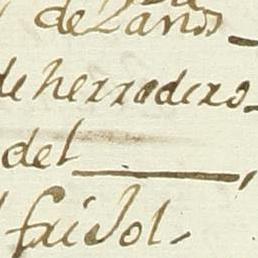 de Panos
de herradero
del ___,
frisol.